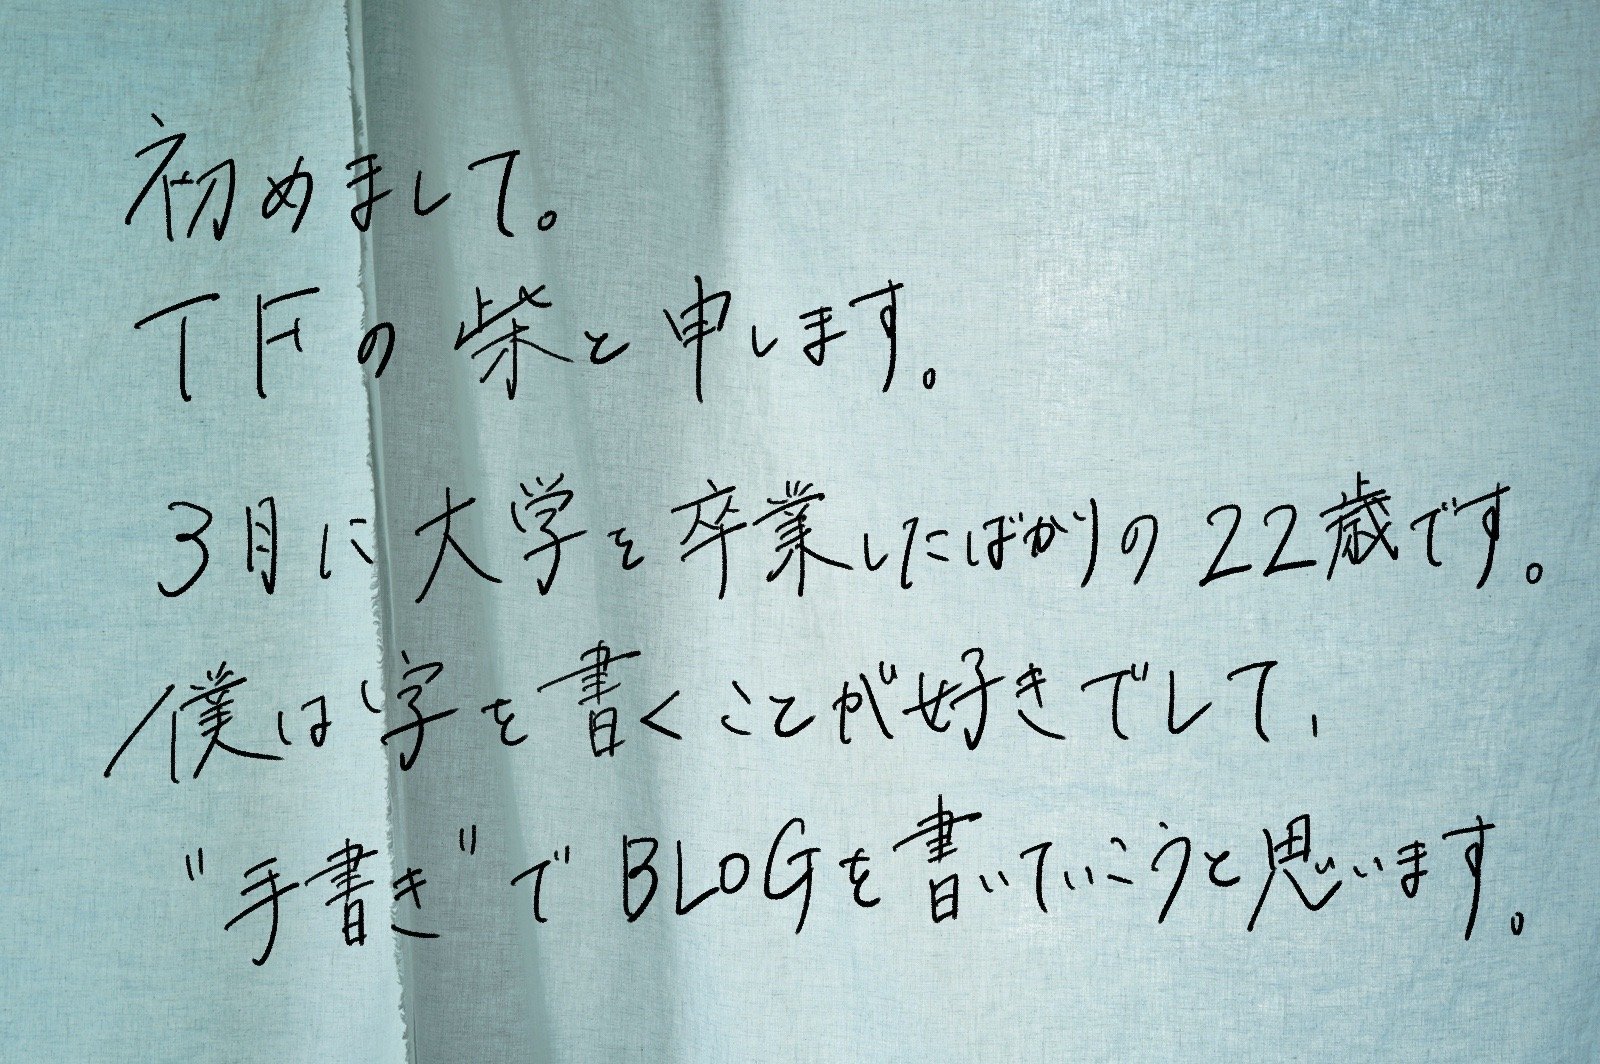 初めまして。
TFの柴と申します。
3月に大学を卒業したばかりの22歳です。
僕は字を書くことが好きでして、
"手書き"でBLOGを書いていこうと思います。